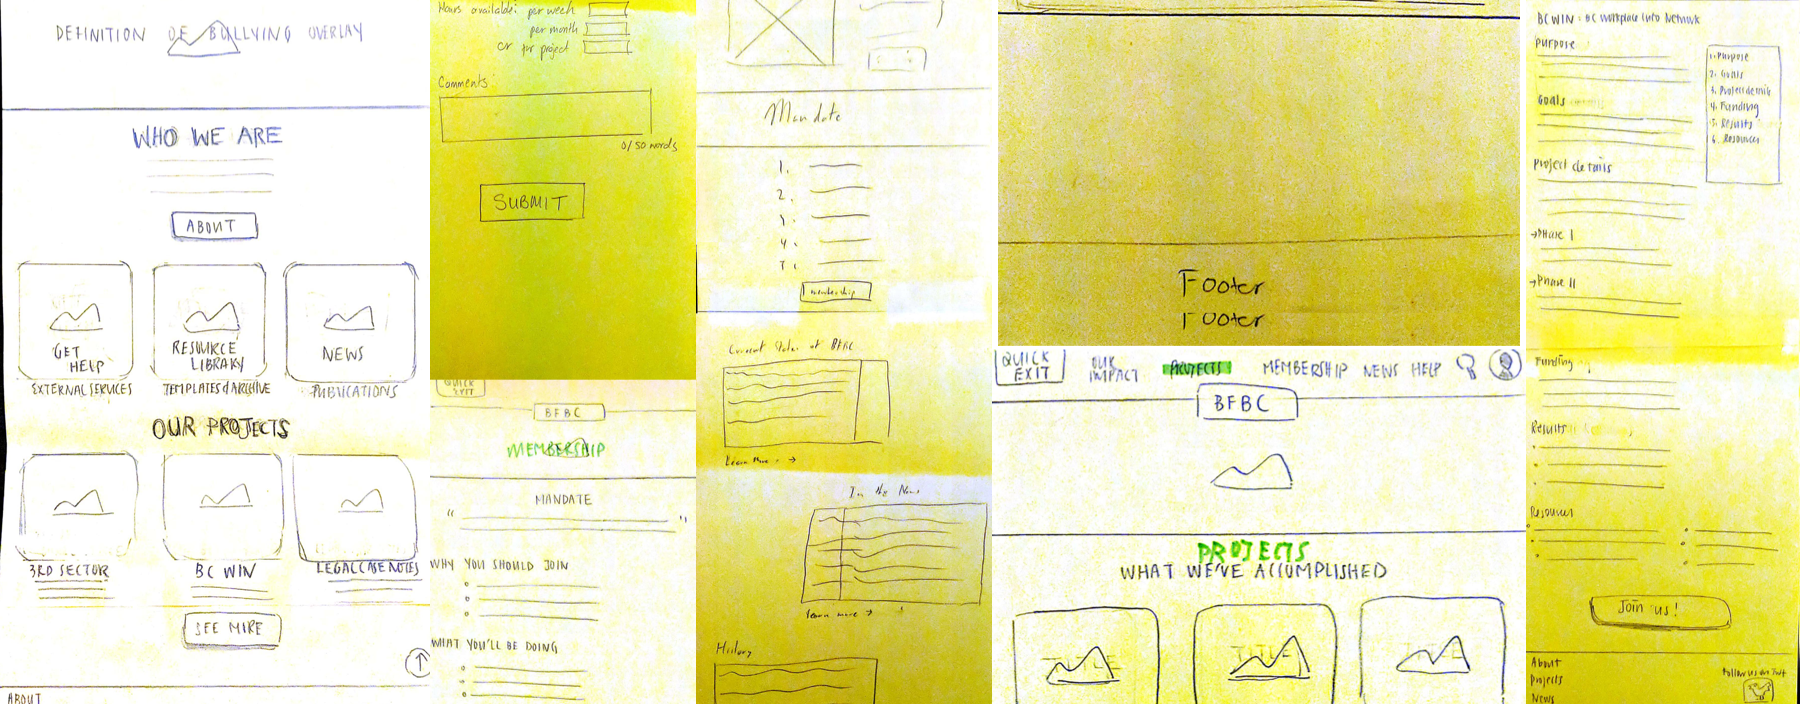 DEFINITION OF BULLYING OVERLAY
WHO WE ARE
ABOUT
GET
HELP
RESOURCE
LIBRARY
NEWS
EXTERNAL SERVICES
TEMPLATES & ARCHIVE
PUBLICATIONS
OUR PROJECTS
3RD SECTOR
BC WIN
LEGAL CASE NOTES
SEE MORE
ABOUT
Hours available: per week
per month
or for project
Comments:
0/50 words
SUBMIT
QUICK
EXIT
BFBC
MEMBERSHIP
MANDATE
" "
WHY YOU SHOULD JOIN
WHAT YOU'LL BE DOING
Mandate
1.
2.
3.
4.
5.
membership
Current Status of BFBC
Learn More →
In the News
learn more →
History
Footer
Footer
QUICK
EXIT
OUR
IMPACT
PROJECTS
MEMBERSHIP
NEWS
HELP
BFBC
PROJECTS
WHAT WE'VE ACCOMPLISHED
TITLE
TITLE
TITLE
BC WIN : BC Workplace Info Network
Purpose
1. Purpose
2. Goals
3. Project details
4. Funding
5. Results
6. Resources
Goals
Project details
→Phase I
→Phase II
Funding
Results
Resources
Join us!
About
Projects
News
Follow us on